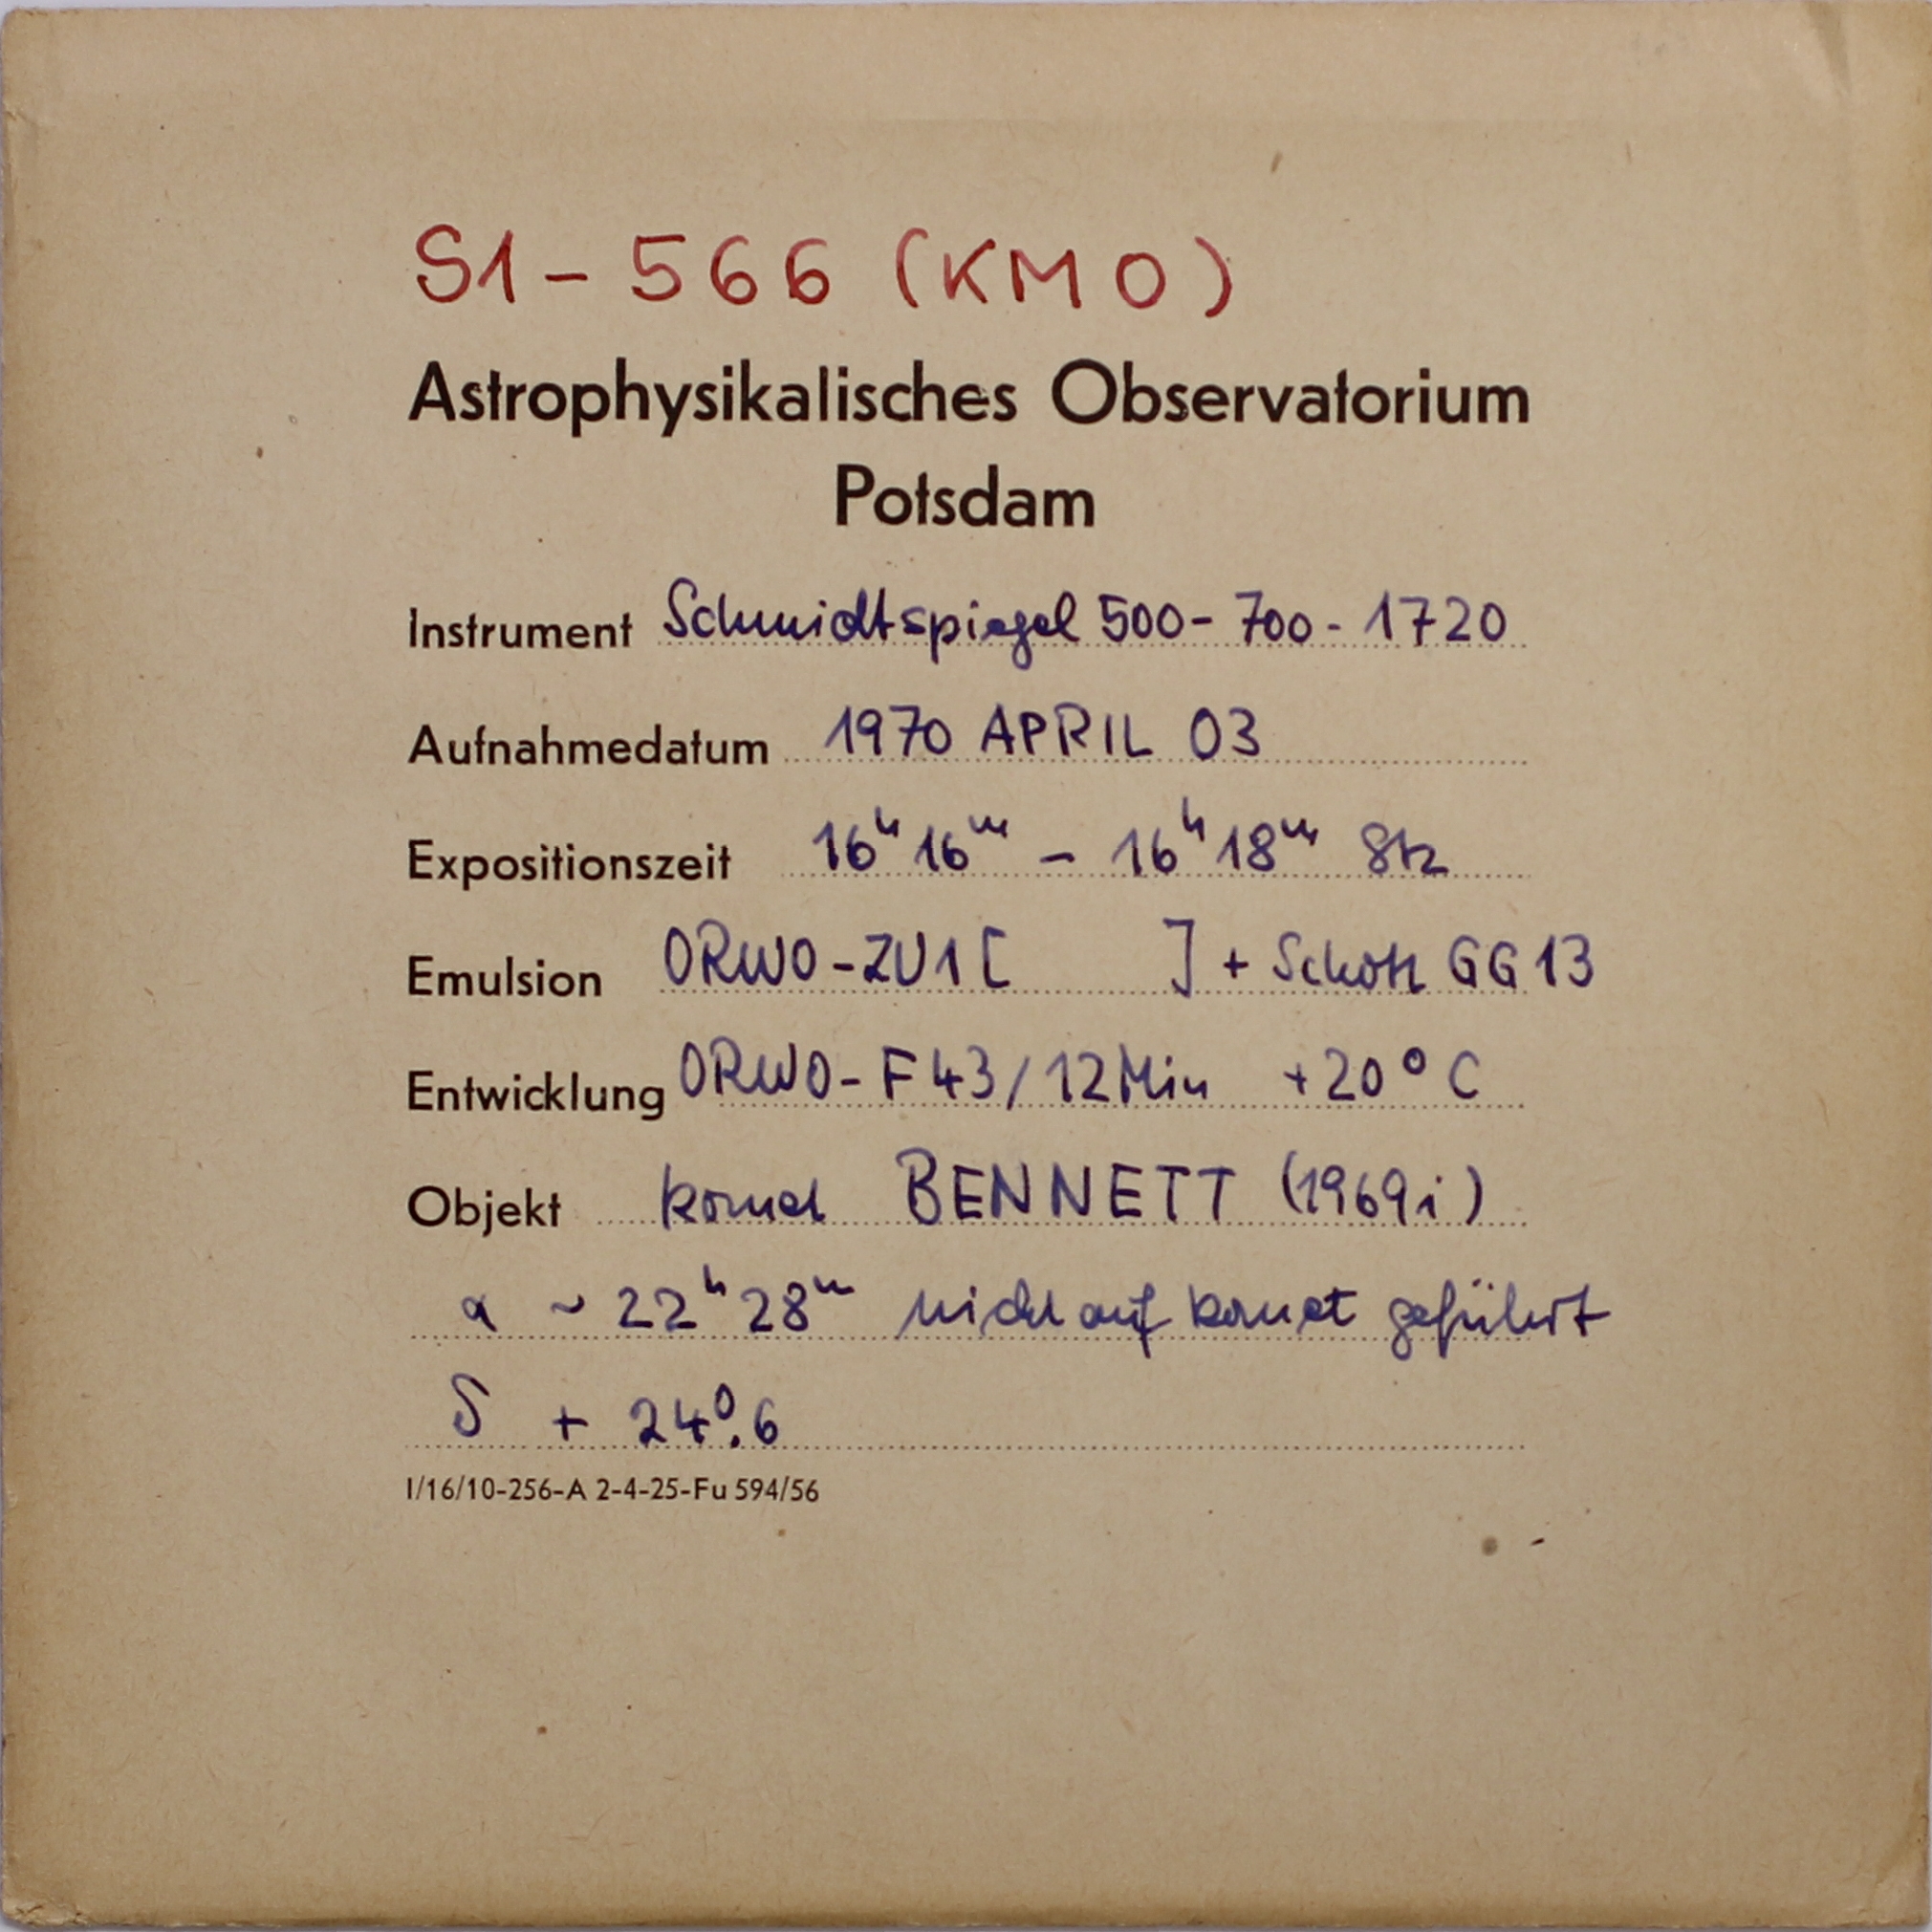 S1 - 566 (KMO)
Astrophysikalisches Observatorium
Potsdam
Instrument Schmidtspiegel 500 - 700 - 1720
Aufnahmedatum 1970 APRIL 03
Expositionszeit 16ʰ16ᵐ - 16ʰ18ᵐ Stz
Emulsion ORWO-ZU1 [ ] + Schott GG13
Entwicklung ORWO-F43/12Min +20°C
Objekt Komet BENNETT (1969i)
α ~ 22ʰ28ᵐ nicht auf Komet geführt
δ + 24°.6
I/16/10-256-A 2-4-25-Fu 594/56